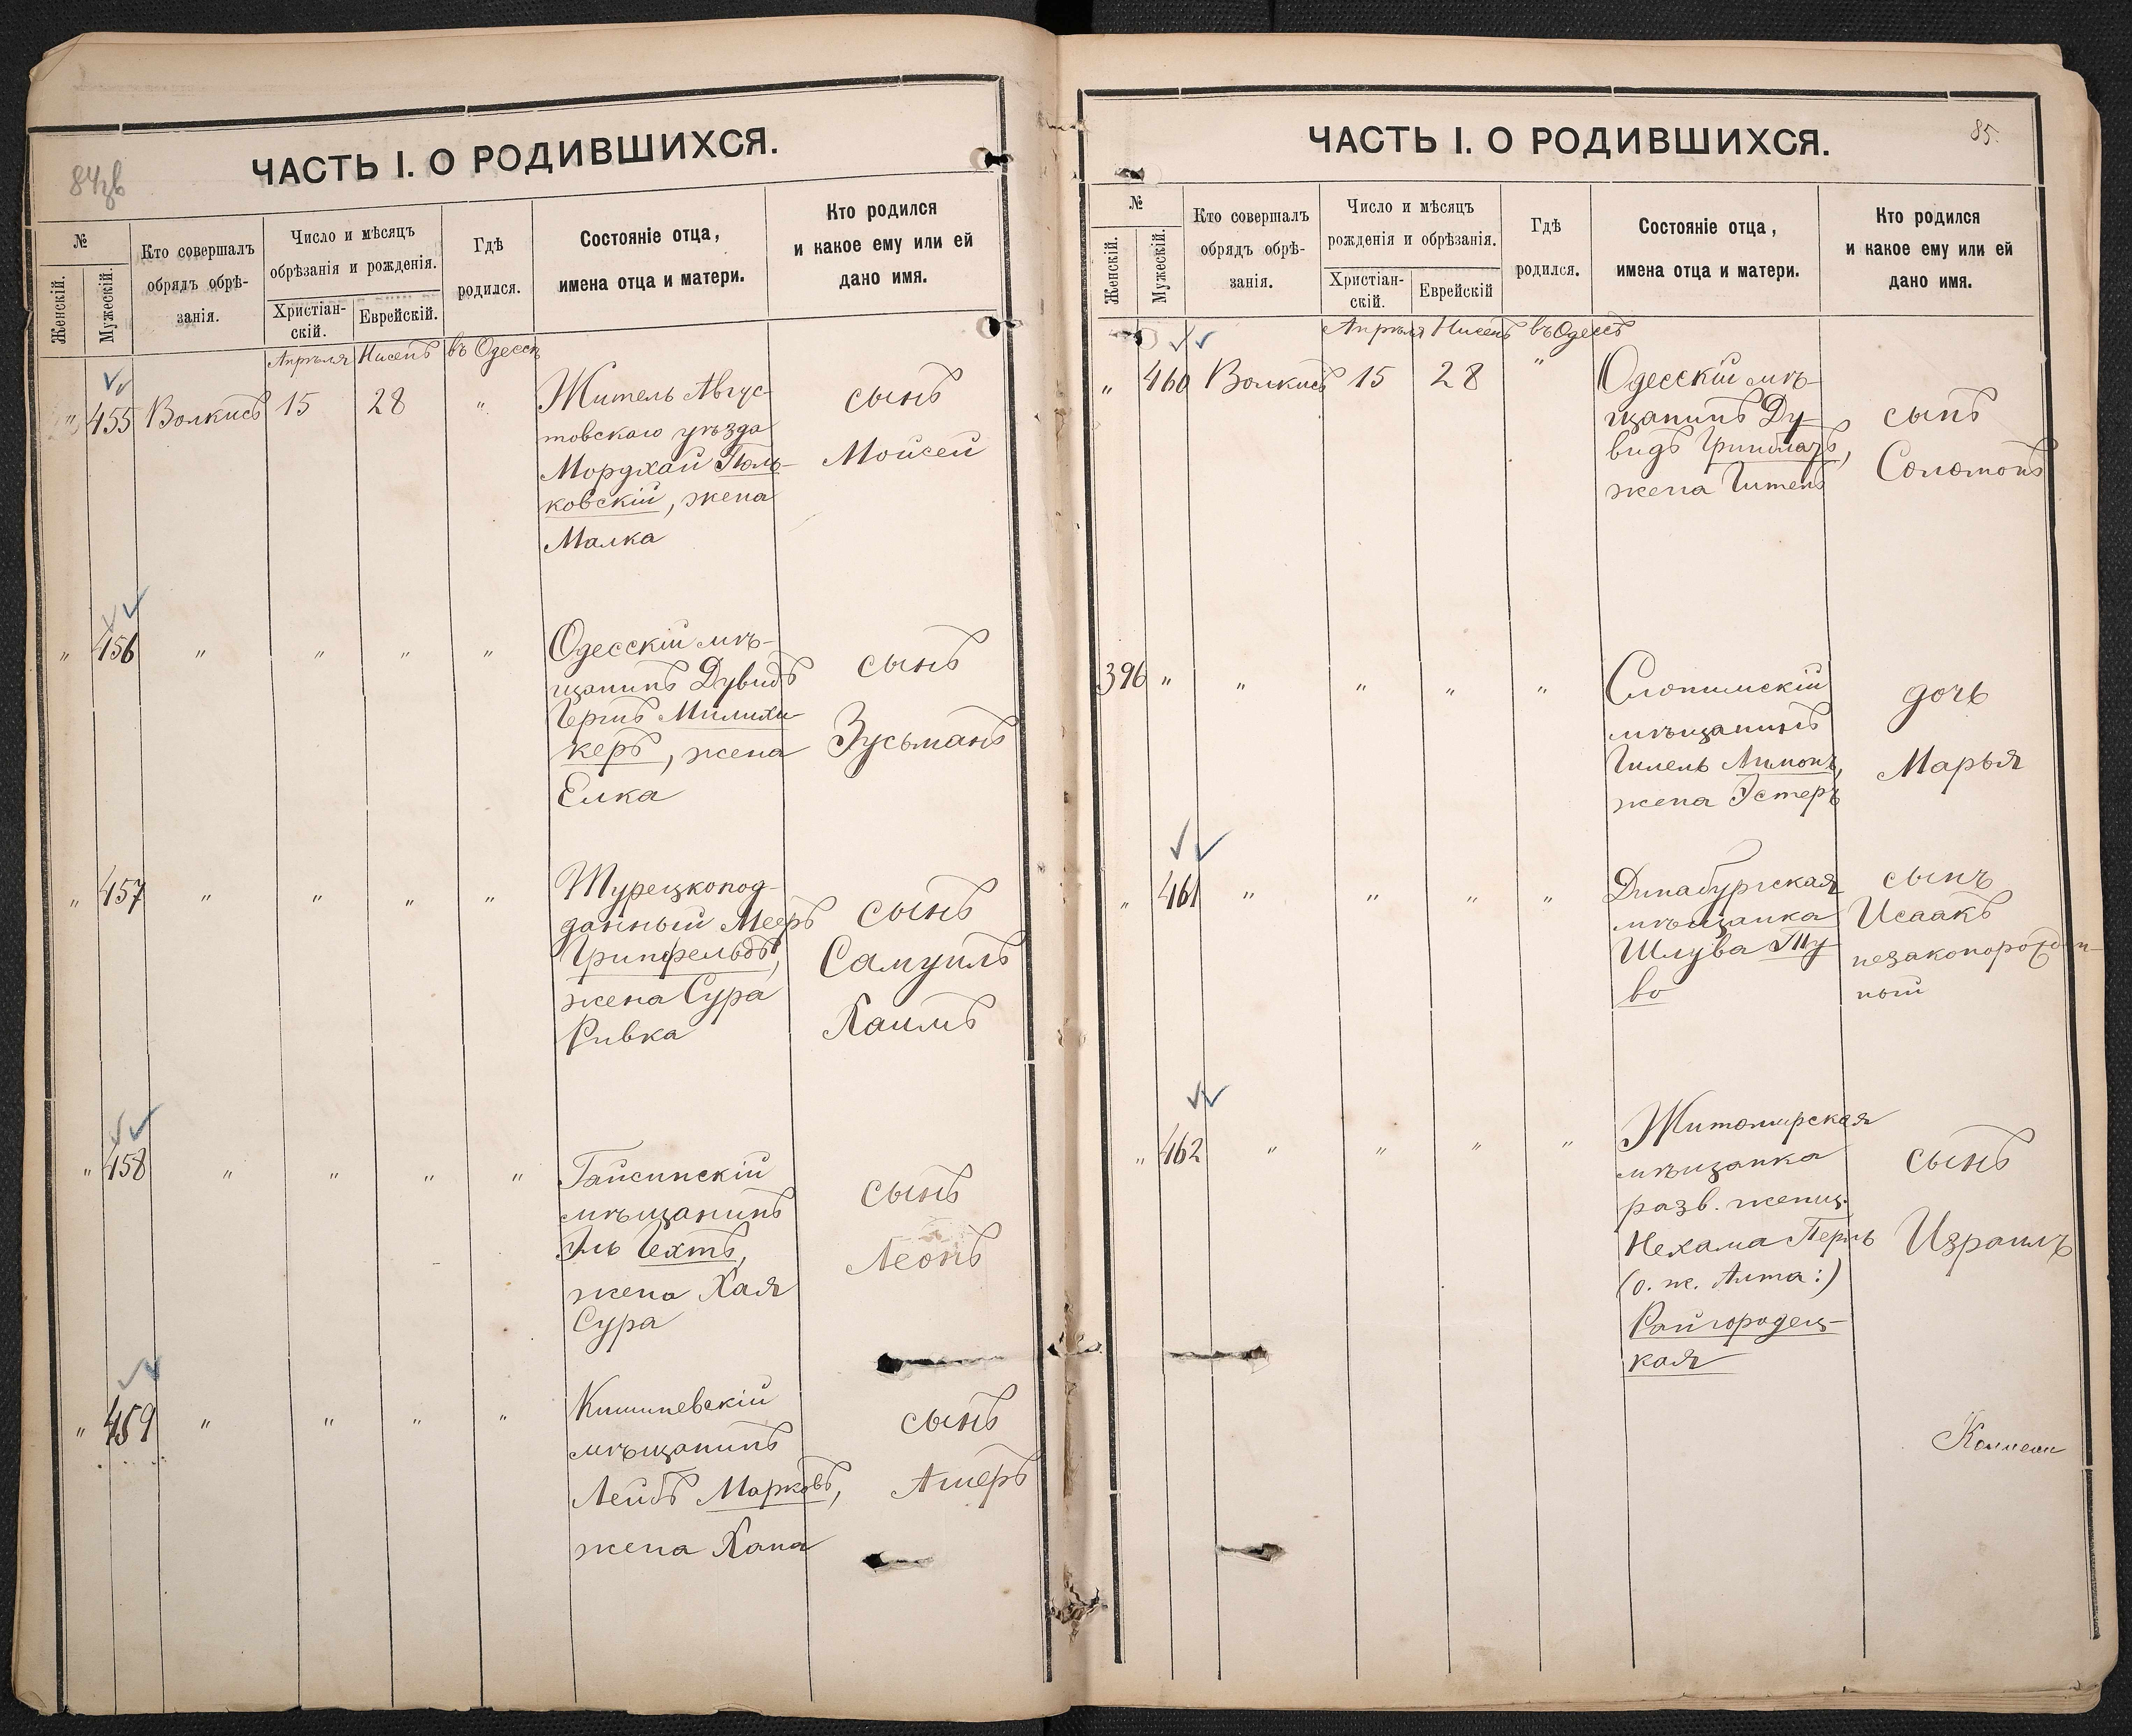 84зв
ЧАСТЬ I. О РОДИВШИХСЯ.
№
Женскій.
Мужескій.
Кто совершалъ
обрядъ обрѣ-
занія.
Число и мѣсяцъ
обрѣзанія и рожденія.
Христіан-
скій.
Еврейскій.
Гдѣ
родился.
Состояніе отца,
имена отца и матери.
Кто родился
и какое ему или ей
дано имя.
Апрѣля Нисенъ въ Одессѣ
" 455 Волкисъ 15 28 "
Житель Авгус-
товскаго уѣзда
Мордхай Поль-
ковскій, жена
Малка
сынъ
Мойсей
" 456 " " " "
Одесскій мѣ-
щанинъ Дувидъ
Гершъ Милихи-
керъ, жена
Елка
сынъ
Зусьманъ
" 457 " " " "
Турецкопод-
данный Мееръ
Гринфельдъ,
жена Сура
Ривка
сынъ
Самуилъ
Хаимъ
" 458 " " " "
Гайсинскій
мѣщанинъ
Эль Гехтъ,
жена Хая
Сура
сынъ
Леонъ
" 459 " " " "
Кишиневскій
мѣщанинъ
Лейбъ Марковъ,
жена Хана
сынъ
Ашеръ
85.
ЧАСТЬ I. О РОДИВШИХСЯ.
№
Женскій.
Мужескій.
Кто совершалъ
обрядъ обрѣ-
занія.
Число и мѣсяцъ
рожденія и обрѣзанія.
Христіан-
скій.
Еврейскій
Гдѣ
родился.
Состояніе отца,
имена отца и матери.
Кто родился
и какое ему или ей
дано имя.
Апрѣля Нисенъ въ Одессѣ
" 460 Волкисъ 15 28 "
Одесскій мѣ-
щанинъ Ду-
видъ
жена Гитень
сынъ
Соломонъ
396 " " " " "
Слонимскій
мѣщанинъ
Гилель Лимонъ,
жена Эстеръ
дочь
Марья
" 461 " " " "
Динабургская
мѣщанка
Шлува Ту-
во
сынъ
Исаакъ
незаконорожден-
ный
" 462 " " " "
Житомирская
мѣщанка
разв. женщ.
Нехама Перль
(о. ж. Алта:)
Райгородец-
кая
сынъ
Израиль